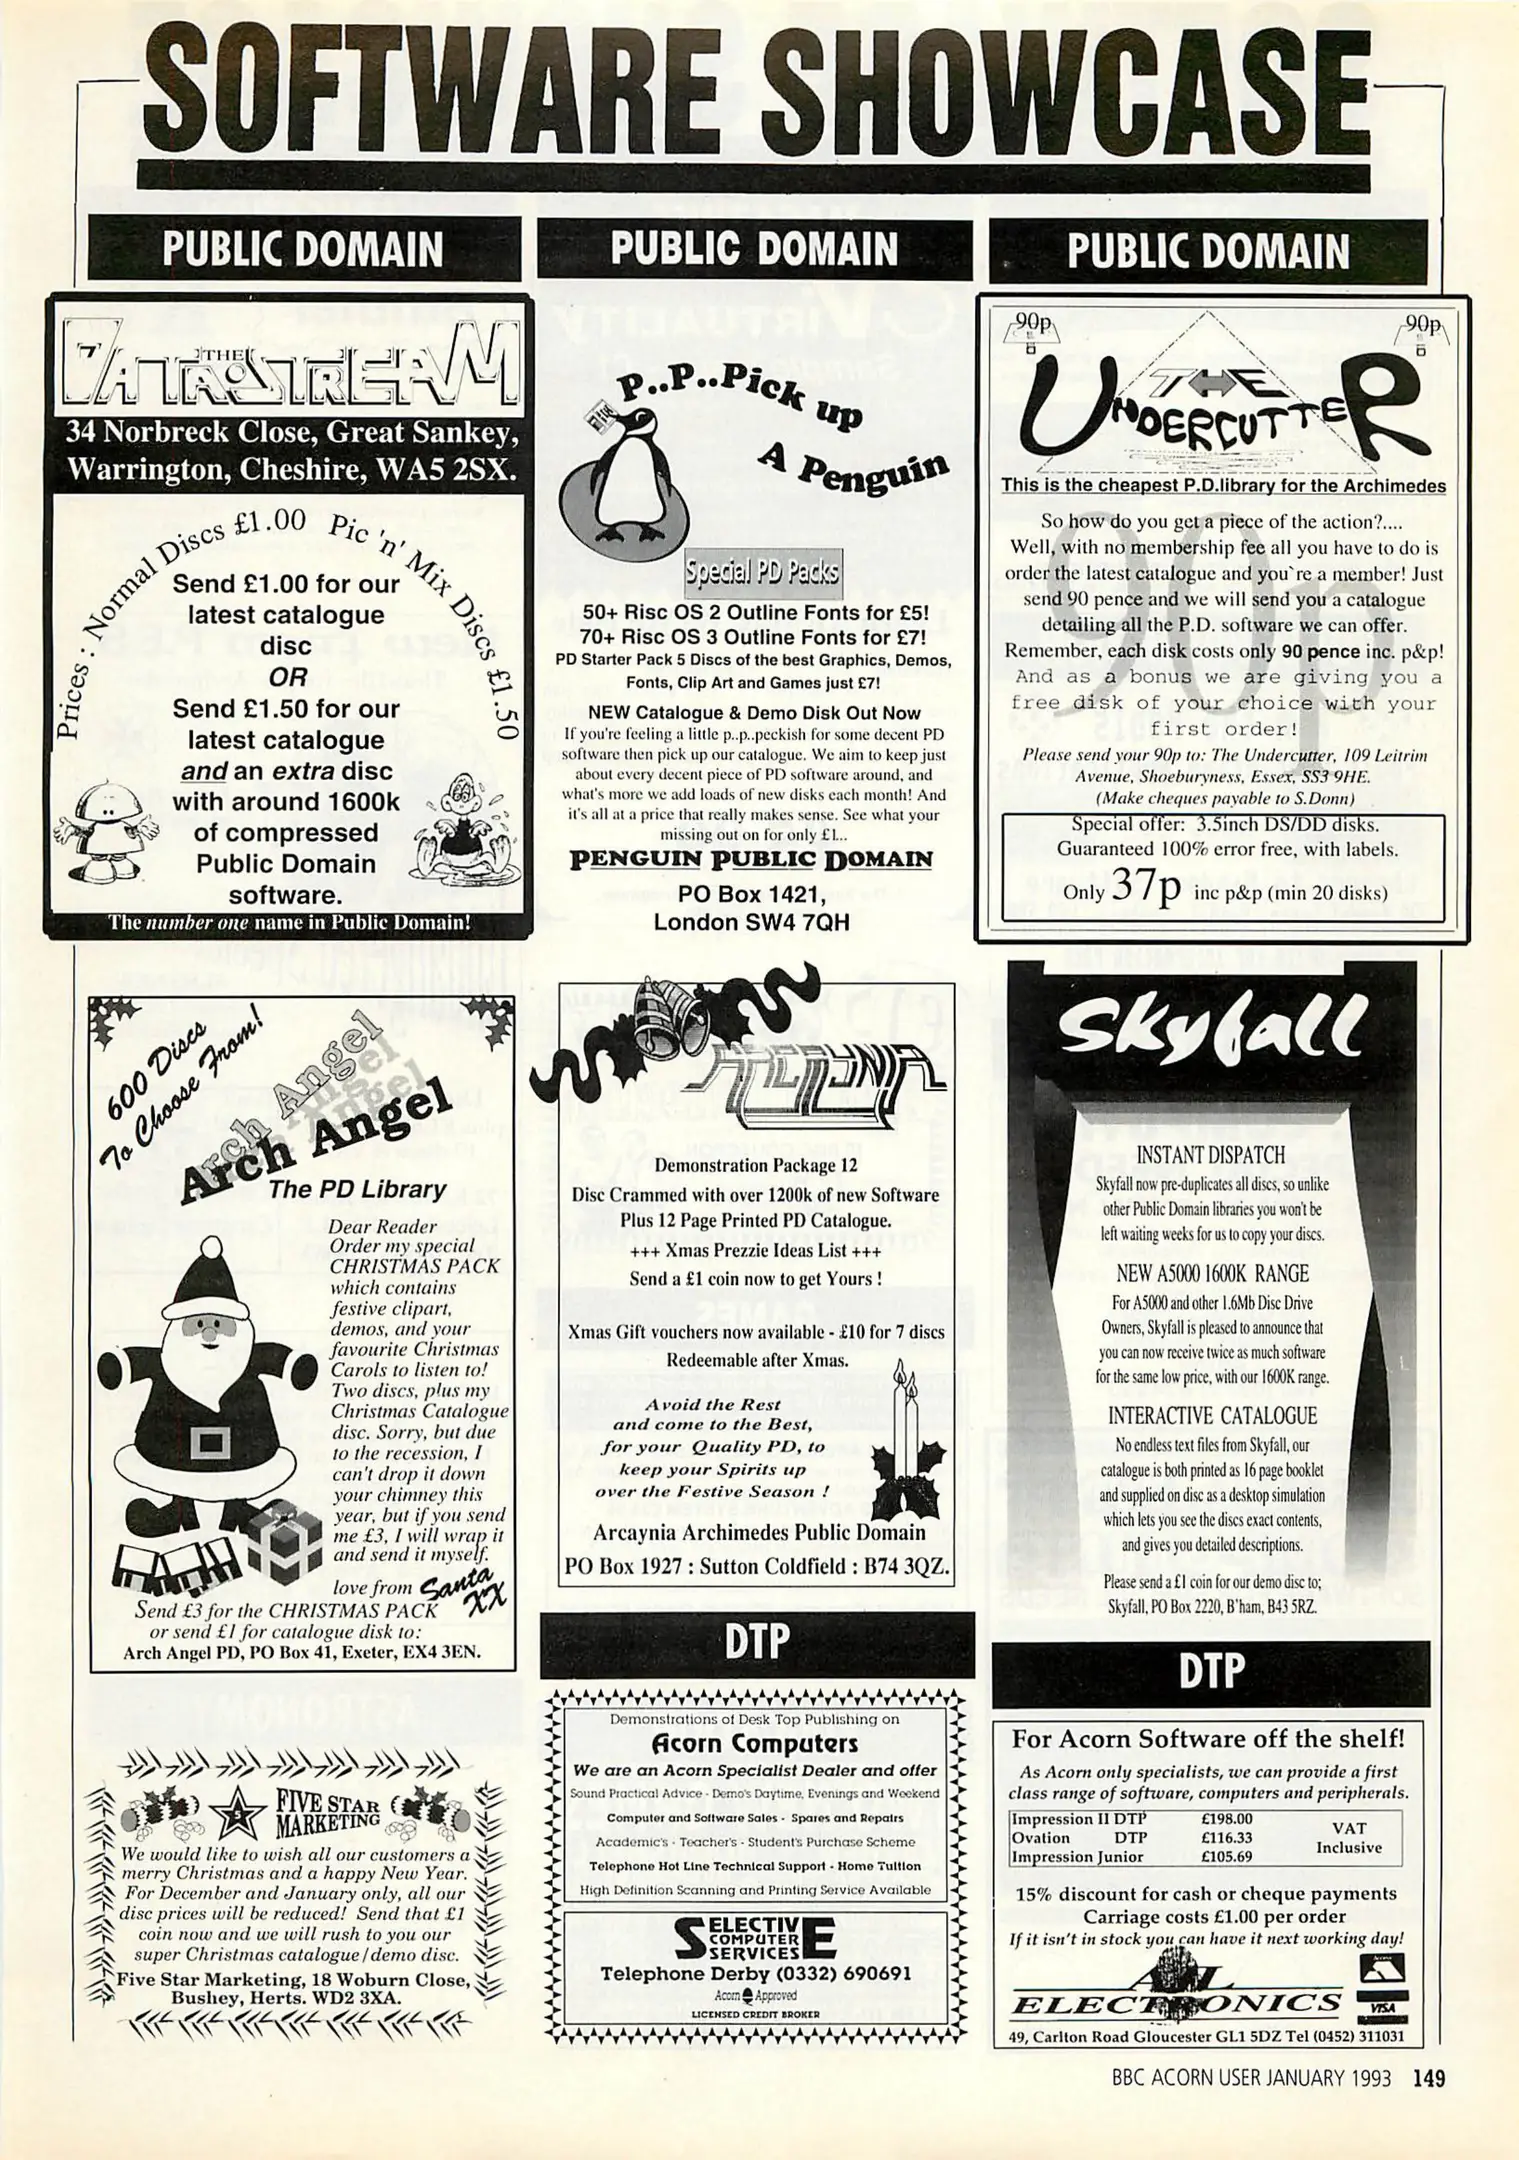 SOFTWARE SHOWCASE
PUBLIC DOMAIN
THE
DATASTREAM
34 Norbreck Close, Great Sankey,
Warrington, Cheshire, WA5 2SX.
Prices : Normal Discs £1.00 Pic 'n' Mix Discs £1.50
Send £1.00 for our
latest catalogue
disc
OR
Send £1.50 for our
latest catalogue
and an extra disc
with around 1600k
of compressed
Public Domain
software.
The number one name in Public Domain!
600 Discs
To Choose From!
Arch Angel
Arch Angel
Arch Angel
The PD Library
Dear Reader
Order my special
CHRISTMAS PACK
which contains
festive clipart,
demos, and your
favourite Christmas
Carols to listen to!
Two discs, plus my
Christmas Catalogue
disc. Sorry, but due
to the recession, I
can't drop it down
your chimney this
year, but if you send
me £3, I will wrap it
and send it myself.
love from Santa
XX
Send £3 for the CHRISTMAS PACK
or send £1 for catalogue disk to:
Arch Angel PD, PO Box 41, Exeter, EX4 3EN.
5
FIVE STAR
MARKETING
We would like to wish all our customers a
merry Christmas and a happy New Year.
For December and January only, all our
disc prices will be reduced! Send that £1
coin now and we will rush to you our
super Christmas catalogue/demo disc.
Five Star Marketing, 18 Woburn Close,
Bushey, Herts. WD2 3XA.
PUBLIC DOMAIN
P..P..Pick up
A Penguin
Special PD Packs
50+ Risc OS 2 Outline Fonts for £5!
70+ Risc OS 3 Outline Fonts for £7!
PD Starter Pack 5 Discs of the best Graphics, Demos,
Fonts, Clip Art and Games just £7!
NEW Catalogue & Demo Disk Out Now
If you're feeling a little p..p..peckish for some decent PD
software then pick up our catalogue. We aim to keep just
about every decent piece of PD software around, and
what's more we add loads of new disks each month! And
it's all at a price that really makes sense. See what your
missing out on for only £1...
PENGUIN PUBLIC DOMAIN
PO Box 1421,
London SW4 7QH
ARCAYNIA
Demonstration Package 12
Disc Crammed with over 1200k of new Software
Plus 12 Page Printed PD Catalogue.
+++ Xmas Prezzie Ideas List +++
Send a £1 coin now to get Yours !
Xmas Gift vouchers now available - £10 for 7 discs
Redeemable after Xmas.
Avoid the Rest
and come to the Best,
for your Quality PD, to
keep your Spirits up
over the Festive Season !
Arcaynia Archimedes Public Domain
PO Box 1927 : Sutton Coldfield : B74 3QZ.
DTP
Demonstrations of Desk Top Publishing on
Acorn Computers
We are an Acorn Specialist Dealer and offer
Sound Practical Advice - Demo's Daytime, Evenings and Weekend
Computer and Software Sales - Spares and Repairs
Academic's - Teacher's - Student's Purchase Scheme
Telephone Hot Line Technical Support - Home Tuition
High Definition Scanning and Printing Service Available
SELECTIVE
COMPUTER
SERVICES
Telephone Derby (0332) 690691
Acorn Approved
LICENSED CREDIT BROKER
PUBLIC DOMAIN
90p
90p
THE
UNDERCUTTER
This is the cheapest P.D.library for the Archimedes
90p
So how do you get a piece of the action?....
Well, with no membership fee all you have to do is
order the latest catalogue and you`re a member! Just
send 90 pence and we will send you a catalogue
detailing all the P.D. software we can offer.
Remember, each disk costs only 90 pence inc. p&p!
And as a bonus we are giving you a
free disk of your choice with your
first order!
Please send your 90p to: The Undercutter, 109 Leitrim
Avenue, Shoeburyness, Essex, SS3 9HE.
(Make cheques payable to S.Donn)
Special offer: 3.5inch DS/DD disks.
Guaranteed 100% error free, with labels.
Only 37p inc p&p (min 20 disks)
Skyfall
INSTANT DISPATCH
Skyfall now pre-duplicates all discs, so unlike
other Public Domain libraries you won't be
left waiting weeks for us to copy your discs.
NEW A5000 1600K RANGE
For A5000 and other 1.6Mb Disc Drive
Owners, Skyfall is pleased to announce that
you can now receive twice as much software
for the same low price, with our 1600K range.
INTERACTIVE CATALOGUE
No endless text files from Skyfall, our
catalogue is both printed as 16 page booklet
and supplied on disc as a desktop simulation
which lets you see the discs exact contents,
and gives you detailed descriptions.
Please send a £1 coin for our demo disc to;
Skyfall, PO Box 2220, B'ham, B43 5RZ.
DTP
For Acorn Software off the shelf!
As Acorn only specialists, we can provide a first
class range of software, computers and peripherals.
Impression II DTP £198.00
Ovation DTP £116.33
Impression Junior £105.69
VAT
Inclusive
15% discount for cash or cheque payments
Carriage costs £1.00 per order
If it isn't in stock you can have it next working day!
ELECTRONICS
VISA
49, Carlton Road Gloucester GL1 5DZ Tel (0452) 311031
BBC ACORN USER JANUARY 1993 149